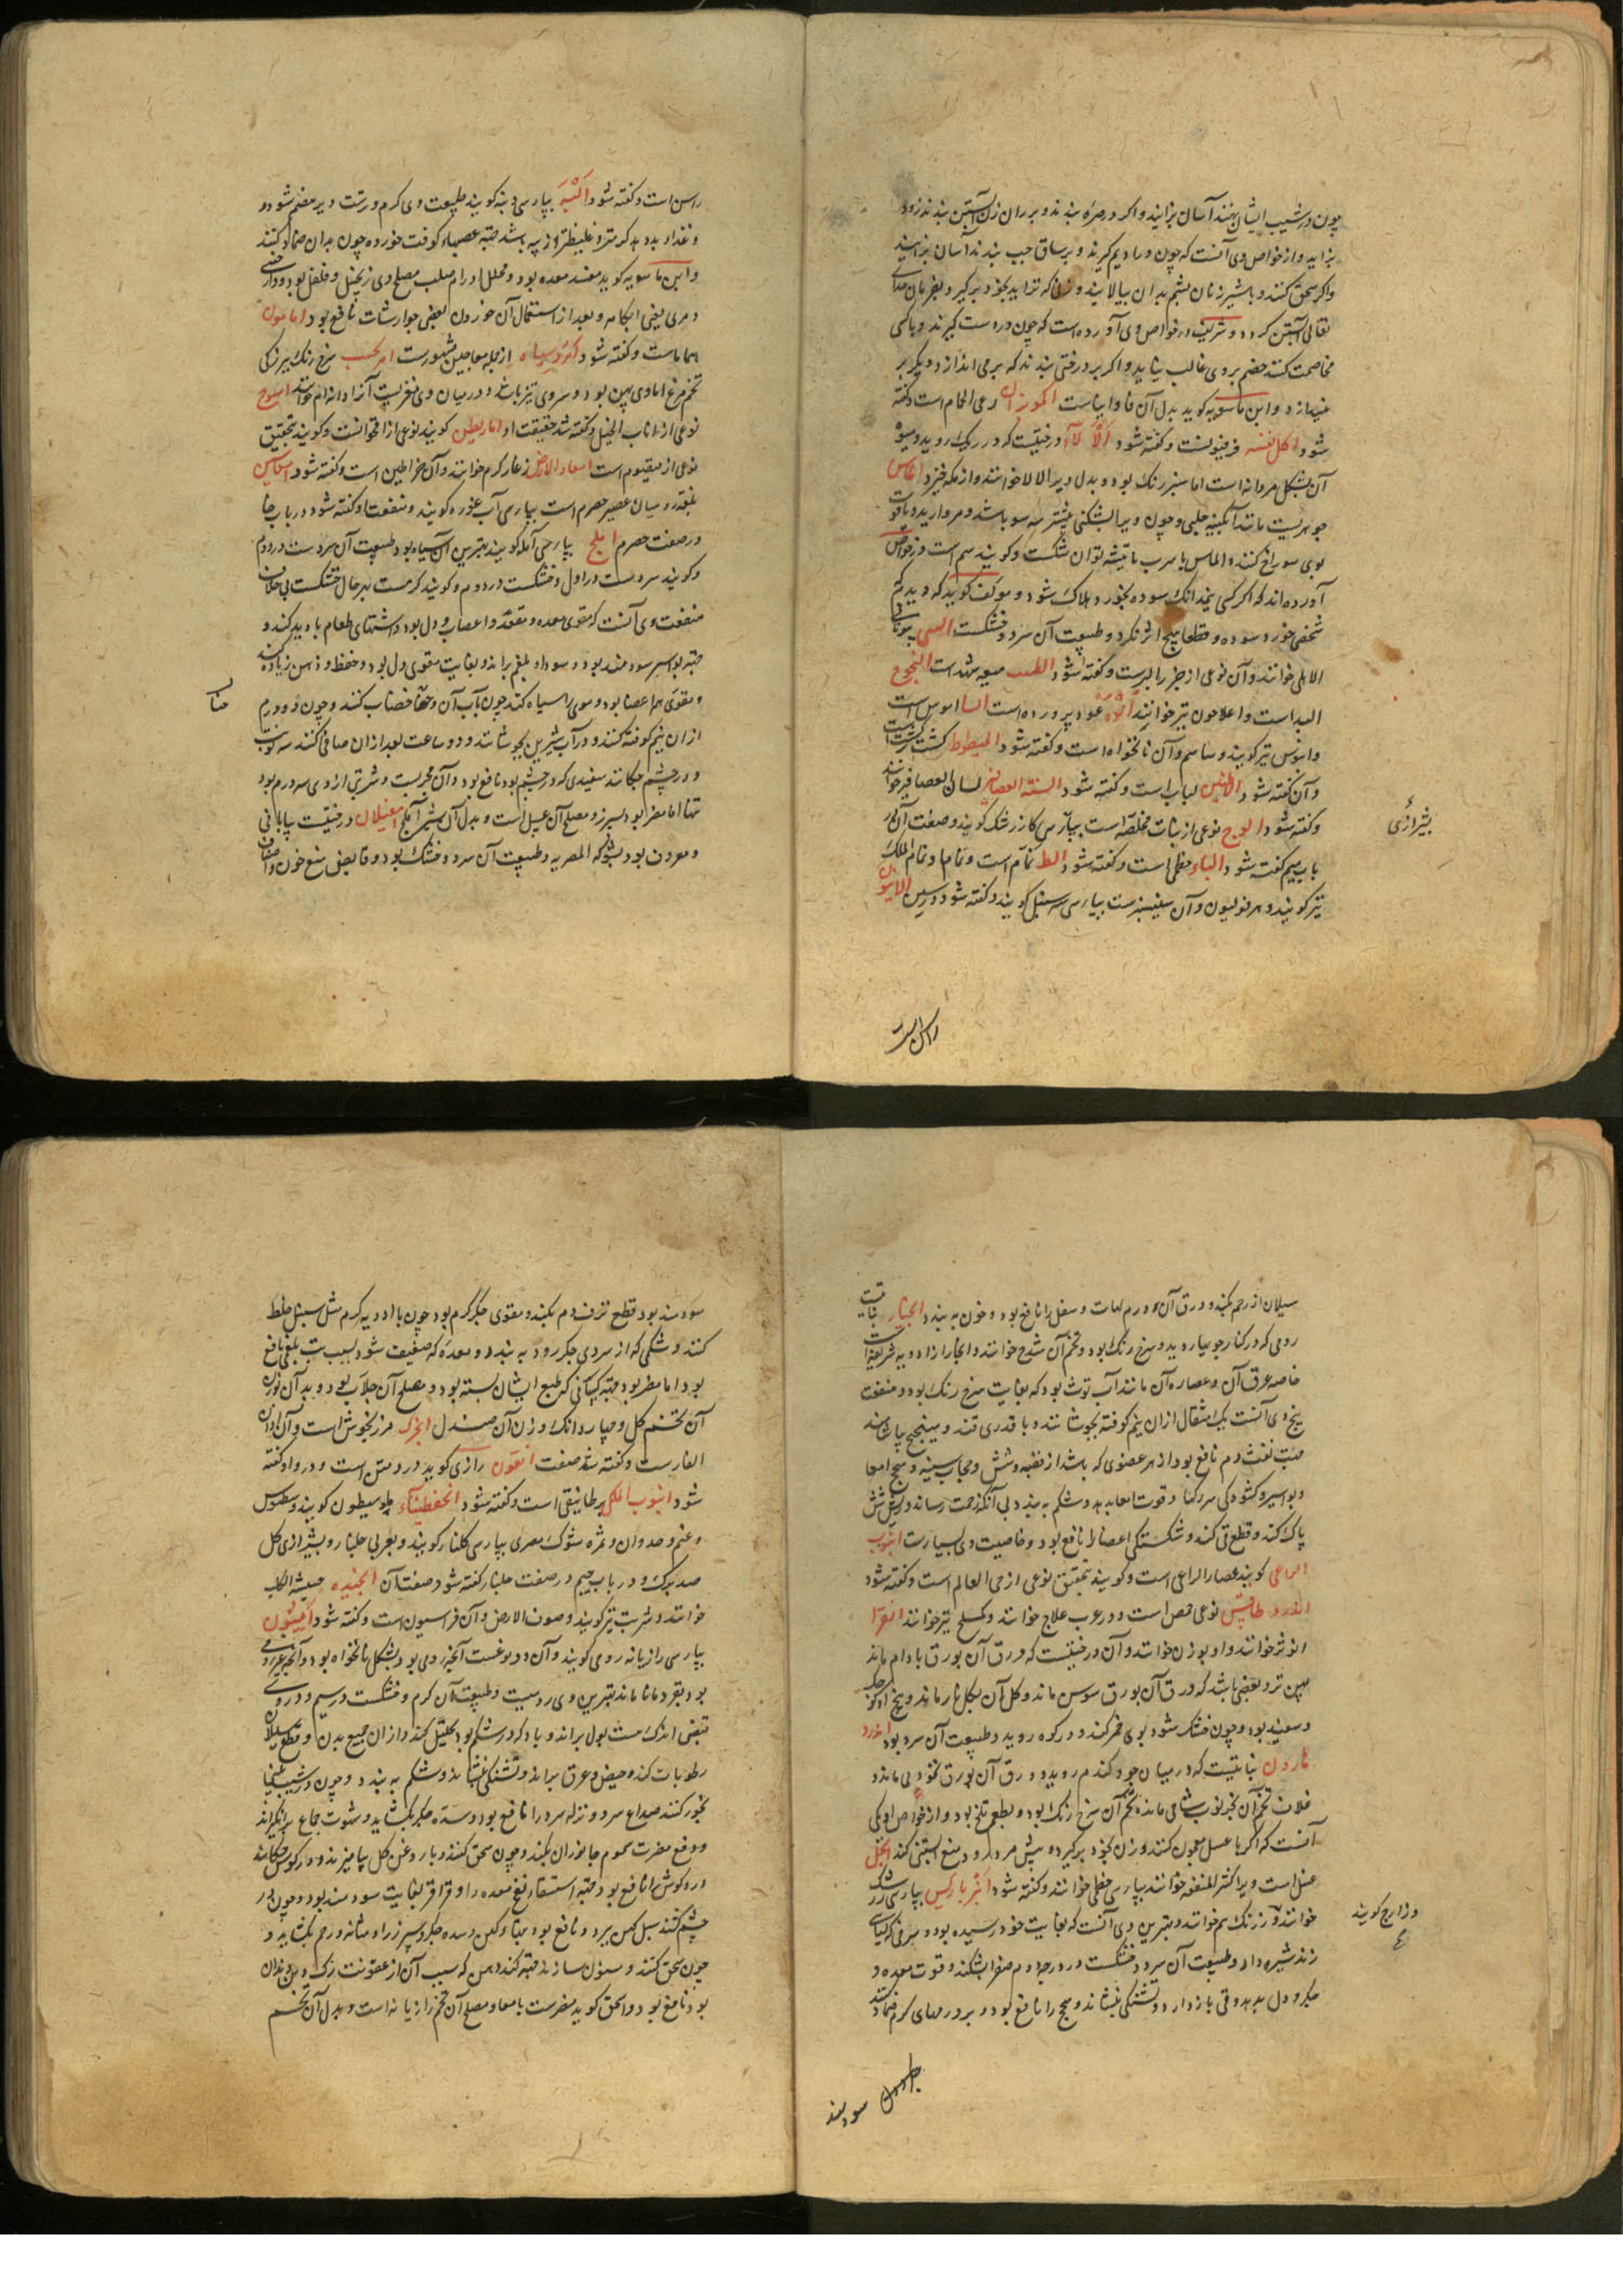 چون در شیب ایشان نهند آسان بزایند و اگر در صره بندند و بر ران زن آبستن بندند زود
بزاید و از خواص وی آنست که چون ویرا در ادیم گیرند و بر ساق چپ بندند آسان بزایند
و اگر سحق کنند و با شیر زنان پشم بدان بیالایند و زنی که نزاید بخود برگیرد بفرمان خدای
تعالی آبستن گردد و شریف در خواص وی آورده است که چون در دست گیرند و با کسی
مخاصمت کنند خصم بر وی غالب نیاید و اگر بر درختی بندند که بر می اندازد دیگر بر
نیندازد و ابن ماسویه گوید بدل آن فاوانیاست اکموبزان رعی الحمام است و گفته
شود اکل نفسه فرفیونست و گفته شود الالا درختیست که در ریگ روید و میوه
آن بشکل مردانه است اما سبز رنگ بود و بدل ویرا لالا خوانند و از مکه خیزد الماس
جوهریست مانند آبگینه حلبی و چون ویرا بشکنی بیشتر سه سو باشد و مروارید و یاقوت
بوی سوراخ کنند و الماس با سرب یا تیشه توان شکست و گویند سم است و در خواص
آورده اند که اگر کسی نیم دانگ سوده بخورد هلاک شود و مولف گوید که دیدم که
شخصی خورد سوده و قطعا هیچ اثر نکرد و طبیعت آن سرد و خشکست السی بیونانی
الاالی خوانند و آن نوعی از جزر البریست و گفته شود الطیب میعه شهد است النجوج
البد است و اعلاجون نیز خوانند الوه عود پرورده است السا اسوس است
و اسوس نیز گویند و ساسم و آن نانخواه است و گفته شود المیطوط کشت برکشت است
و آن گفته شود الاطینی لبلاب است و گفته شود السنة العصافیر لسان العصافیر خوانند
و گفته شود الوج نوعی از نبات مخلصه است بپارسی کازرشک گویند و صفت آن در
باب میم گفته شود الباء خطمی است و گفته شود الط نمام است و نماما و نمام الملک
نیز گویند و هرفولیون و آن سیسنبرست بپارسی سه سنبل گویند و گفته شود در سین الانیون
بشیرازی
راسن است
راسن است و گفته شود الیه بپارسی دنبه گویند طبیعت وی گرم و ترست دیر هضم شود و
و غذا بد دهد گرمتر و غلیظتر از پیه باشد جهة عصبهاء کوفت خورده چون بدان ضماد کنند
و ابن ماسویه گوید مفسد معده بود و محلل اورام صلب مصلح وی زنجبیل و فلفل بود و دارچینی
و مری یعنی آبکامه و بعد از استعمال آن خوردن بعضی جوارشات نافع بود امامون
حماماست و گفته شود امروسیاه از جمله معاجین مشهورست امر کسب سرخ رنگ ببزرگی
تخم مرغ اما وی پهن بود و سر وی تیز باشد و در میان وی مغزیست آنرا دانه ام خوانند امسوح
نوعی از اذناب الخیل و گفته شد حقیقت او اماریطن گویند نوعی از اقحوانست و گویند بتحقیق
نوعی از قیصوم است امعاء الارض زغار کرم خوانند و آن خراطین است و گفته شود امبالس
بلغة رومیان عصیر حصرم است بپارسی آب غوره گویند و منفعت او گفته شود در باب حا
در صفت حصرم املج بپارسی آمله گویند بهترین آن سیاه بود طبیعت آن سردست در دوم
و گویند سردست در اول و خشکست در دوم و گویند گرمست بهر حال خشکست بی خلاف
منفعت وی آنست که مقوی معده و مقعد و اعصاب و دل بود و اشتهای طعام بادید کند و
جهة بواسیر سودمند بود و سودا و بلغم براند و بغایت مقوی دل بود و حفظ و ذهن زیاده کند
و مقوی همه اعضا بود و موی را سیاه کند چون بآب آن و حنا خضاب کنند و چون دو درم
حنا
از آن نیم کوفته کنند و در آب شیرین بجوشانند و دو ساعت بعد از آن صافی کنند سه نوبت
و در چشم چکانند سفیدی که در چشم بود نافع بود و آن مجربست و شربتی از وی سه درم بود
تنها اما مضر بود بسپرز و مصلح آن عسل است و بدل آن شیر آملج امغیلان درختیست بیابانی
و معروف بود بشوکة المصریه و طبیعت آن سرد و خشک بود و قابض منع خون و اصناف
سیلان از رحم بکند و ورق آن ورم لهات و سفل را نافع بود و خون به بندد انجبار نباتیست
رومی که در کنار جوی ها روید و سرخ رنگ بود و تخم آن شدخ خوانند و انجبار از ادویه شریفه است
خاصه عرق آن و عصاره آن مانند آب توث بود که بغایت سرخ رنگ بود و منفعت
بیخ وی آنست یک مثقال از آن نیم کوفته بجوشانند و با قدری قند و میپختج بیاشامند
جهت نفث دم نافع بود از هر عضوی که باشد از قصبه و شش و حجاب سینه و سحج امعا
و بواسیر و گشودگی سر رگها و قوت امعا بدهد و شکم به بندد بی آنکه زحمت رساند و ریش شش
پاک کند و قطع قی کند و شکستگی اعضا را نافع بود و خاصیت وی بسیارست انبوب
الراعی گویند عصا الراعی است و گویند بتحقیق نوعی از حی العالم است و گفته شود
اندرو طالیس نوعی حمص است و در عرب علاج خوانند و کسلج نیز خوانند انقرا
انوثیر خوانند و او بوزن خوانند و آن درختیست که ورق آن بورق بادام ماند
پهن تر و بعضی باشد که ورق آن بورق سوسن ماند و گل آن بگل نار ماند و بیخ او کوچک
و سفید بود و چون خشک شود بوی خمر کند و در کوه روید و طبیعت آن سرد بود اندرو
نارون نباتیست که در میان جو و گندم روید و ورق آن بورق نخود می ماند و
غلاف تخم آن بخرنوب شامی ماند و تخم آن سرخ رنگ بود و بطعم تلخ بود و از خواص او یکی
آنست که اگر با عسل معجون کنند و زن بخود برگیرد پیش مرد رود منع آبستنی کند انجل
عسل است و یرا کثیر المنفعه خوانند بپارسی خطمی خوانند و گفته شود انبرباریس بپارسی زرشک
خوانند و زرنک هم خوانند و بهترین وی آنست که بغایت خود رسیده بود و سرخی که بسیاهی
و زارج گویند
زند شیره دار و طبیعت آن سرد و خشکست در درجه دوم صفرا بشکند و قوت معده و
جگر و دل بدهد و قی باز دارد و تشنگی بنشاند و سحج را نافع بود و بر ورمهای گرم ضماد کنند
سودمند
سودمند بود قطع نزف دم بکند و مقوی جگر گرم بود چون با ادویه گرم مثل سنبل خلط
کنند و شکمی که از سردی جگر رود به بندد و معده که ضعیف شود بسبب تب بلغمی نافع
بود اما مضر بود جهة کسانی که طبع ایشان بسته بود و مصلح آن جلاب بود و بدل آن بوزن
آن تخم گل و چهار دانگ وزن آن صندل انجرک مرزنجوش است و آن آذان
الفارست و گفته شد صفت انقون رازی گوید درومس است و در واو گفته
شود انبوب الملک برطانیقی است و گفته شود انحفطیناء پلوسیطون گویند و سطوس
و غنم و صدوان و ثمره شوک مصری بپارسی گلنار گویند و بعربی جلنار و بشیرازی گل
صد برگ و در باب جیم در صفت جلنار گفته شود صفت آن انجیده حشیشة الکلب
خوانند و شربت نیز گویند و صوف الارض و آن فراسیون است و گفته شود انیسون
بپارسی رازیانه رومی گویند و آن دو نوعست آنچه رومی بود بشکل نانخواه بود و آنچه غیر رومی
بود بقردمانا ماند بهترین وی رومیست و طبیعت آن گرم و خشکست در سیم و در وی
قبضی اندک هست بول براند و باد که در شکم بود بتحلیل کند و از آن جمیع بدن و قطع سیلان
رطوبات کند و حیض و عرق براند و تشنگی بنشاند و شکم به بندد و چون در شیب بینی
بخور کنند صداع سرد و نزله سرد را نافع بود و سده جگر بگشاید و شهوت جماع برانگیزاند
و دفع مضرت سموم جانوران بکند و چون سحق کنند و با روغن گل بیامیزند و در گوش چکانند
درد گوش را نافع بود و جهة استسقا و نفخ معده را و قراقر بغایت سودمند بود و چون در
چشم کنند سبل کهن ببرد و نافع بود تبها کهن و سده جگر و سپرز را و مثانه و رحم بگشاید و
چون سحق کنند و سنون سازند جهة گند دهن که سبب آن از عفونت بزرگ و بن دندان
بود نافع بود و اسحق گوید مضرست بامعا و مصلح آن تخم رازیانه است و بدل آن تخم